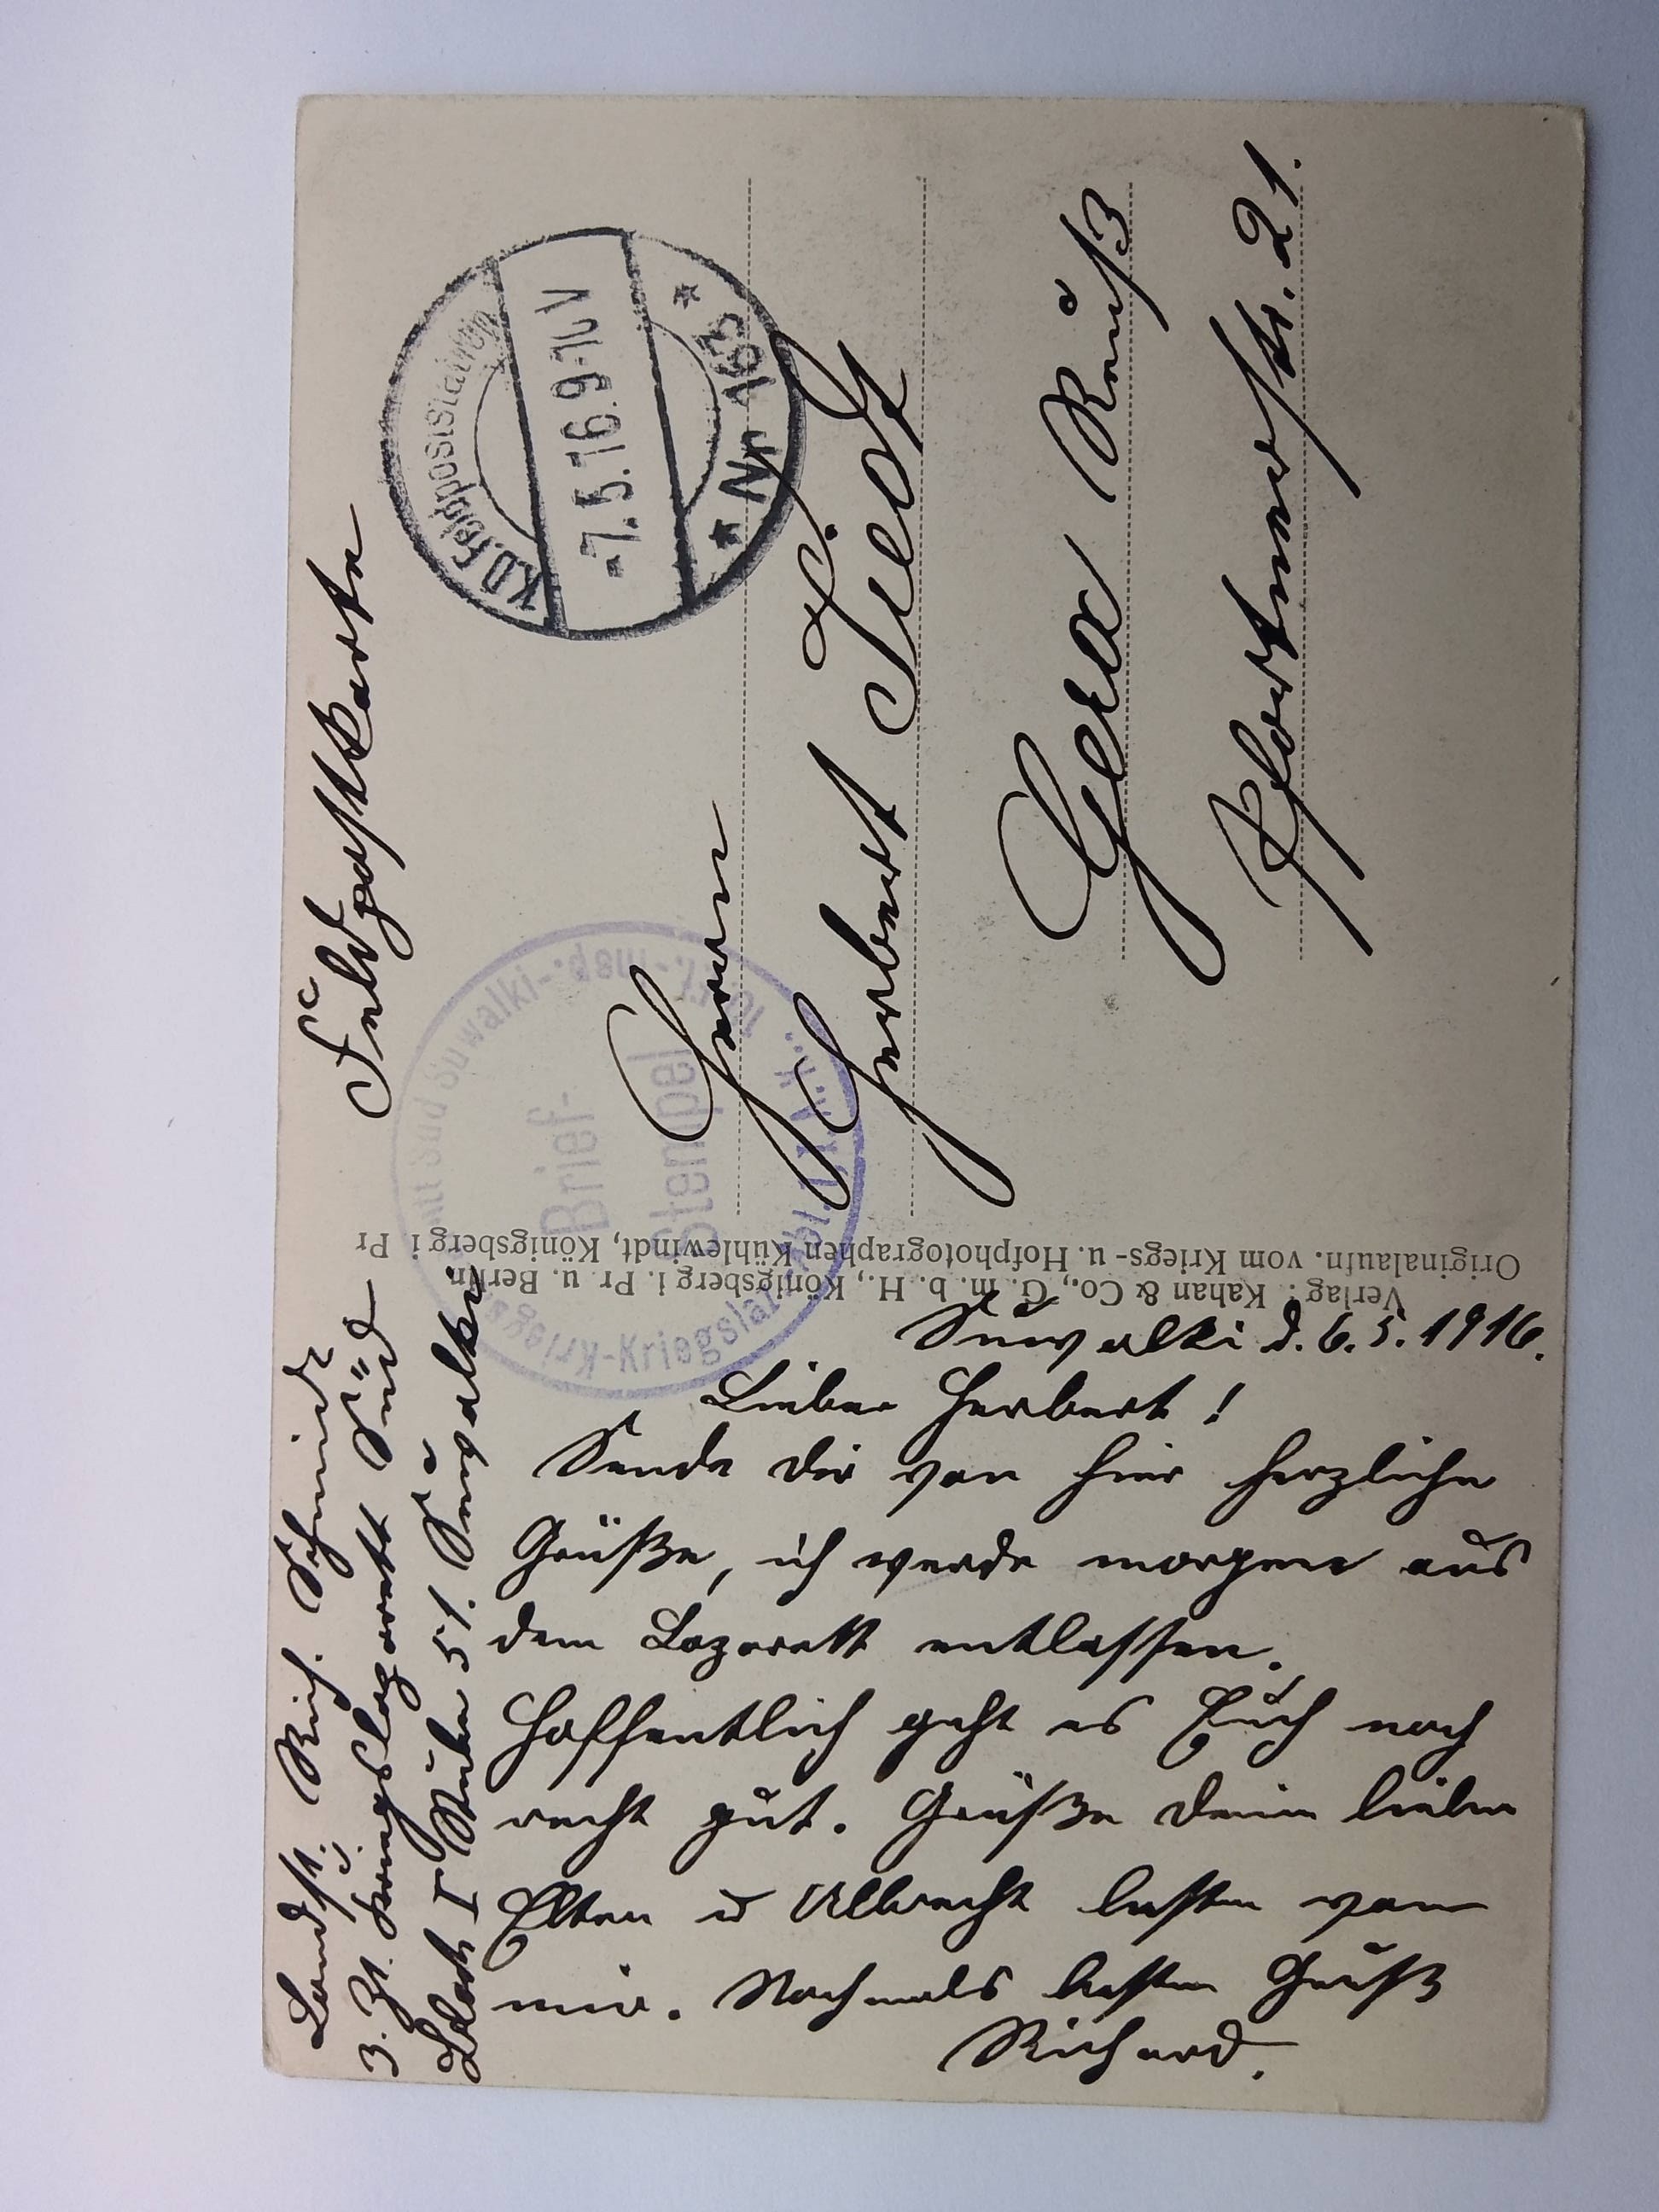 Landst. Rich. Schmidt
z. Zt. Kriegslazarett Süd
Block I Stube 51. Suwalki
Feldpostkarte
K.D. Feldpoststation
-7.5.16.9-10V
* Nr 163 *
Brief-
Stempel
Suwalki
Kriegslaz.
Herrn
Herbert Tiedt
Gera Reuß
Pfortnerstr. 21.
Originalaufn. vom Kriegs- u. Hofphotographen Kühlewindt, Königsberg i Pr
Verlag: Kahan & Co., G. m. b. H., Königsberg i. Pr. u. Berlin.
Suwalki d. 6.5.1916.
Lieber Herbert!
Sende dir von hier herzliche
Grüße, ich werde morgen aus
dem Lazarett entlassen.
Hoffentlich geht es Euch noch
recht gut. Grüße deine lieben
Elten u Albrecht besten von
mir. Nochmals besten Gruß
Richard.